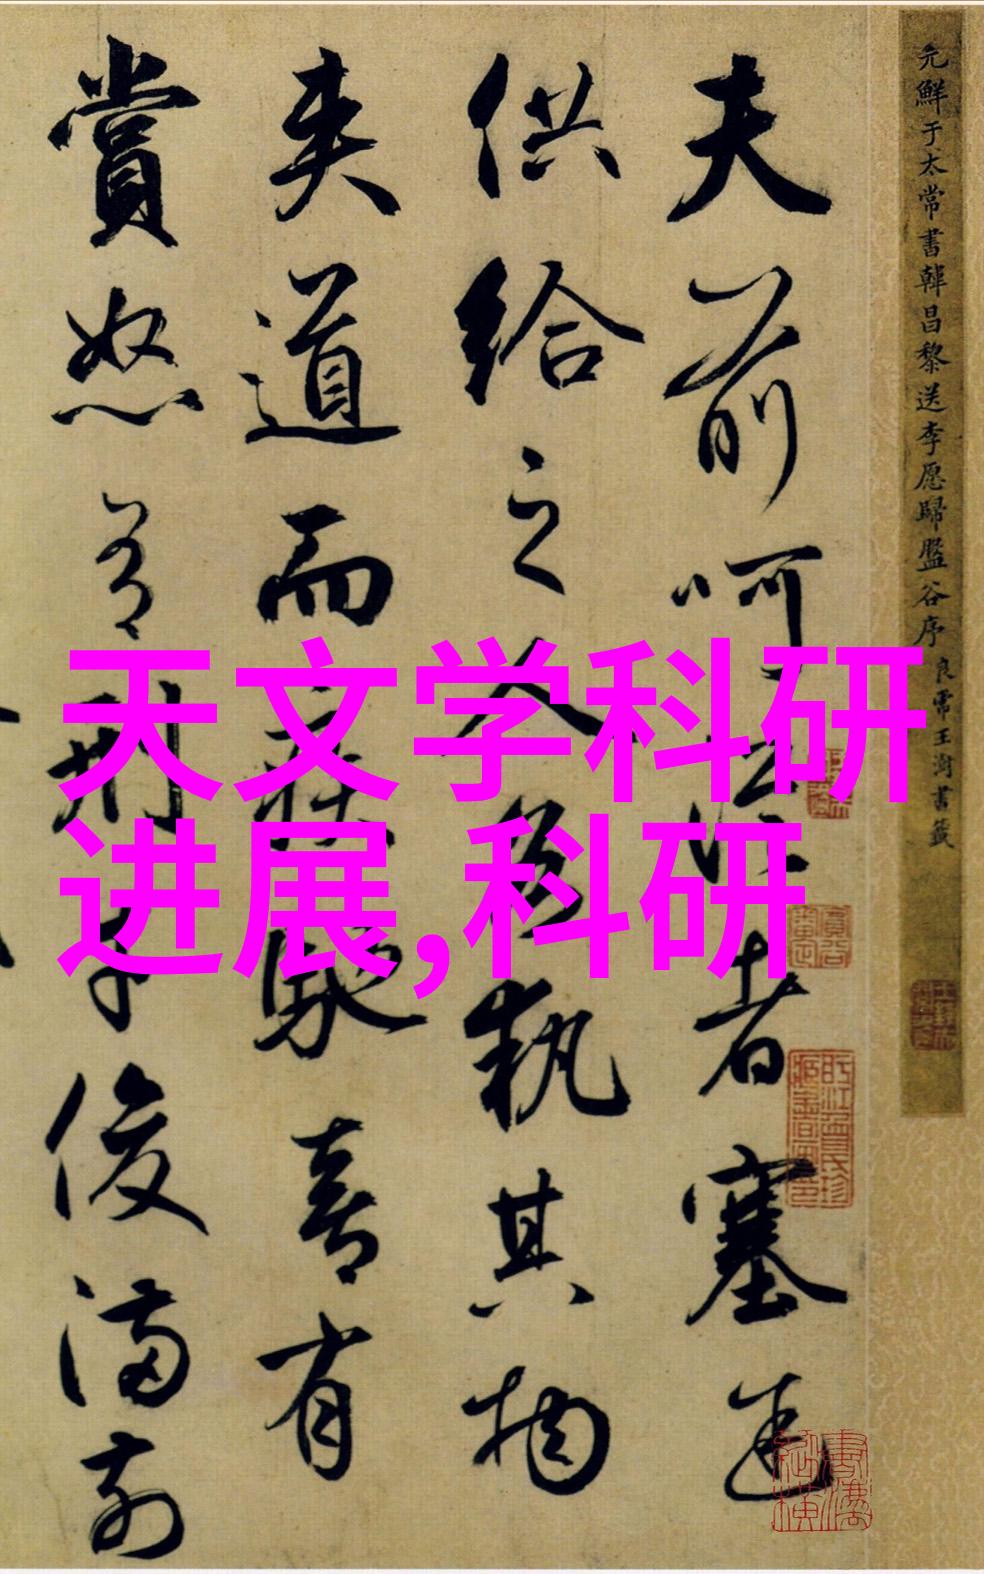 天文学科研
进展,科研
元鮮于太常書韓昌黎送李愿歸盤谷序 良常王澍書籤
夫前呵從者塞途
供給之人各執其物
夾道而疾馳喜有
賞怒有刑才俊滿前